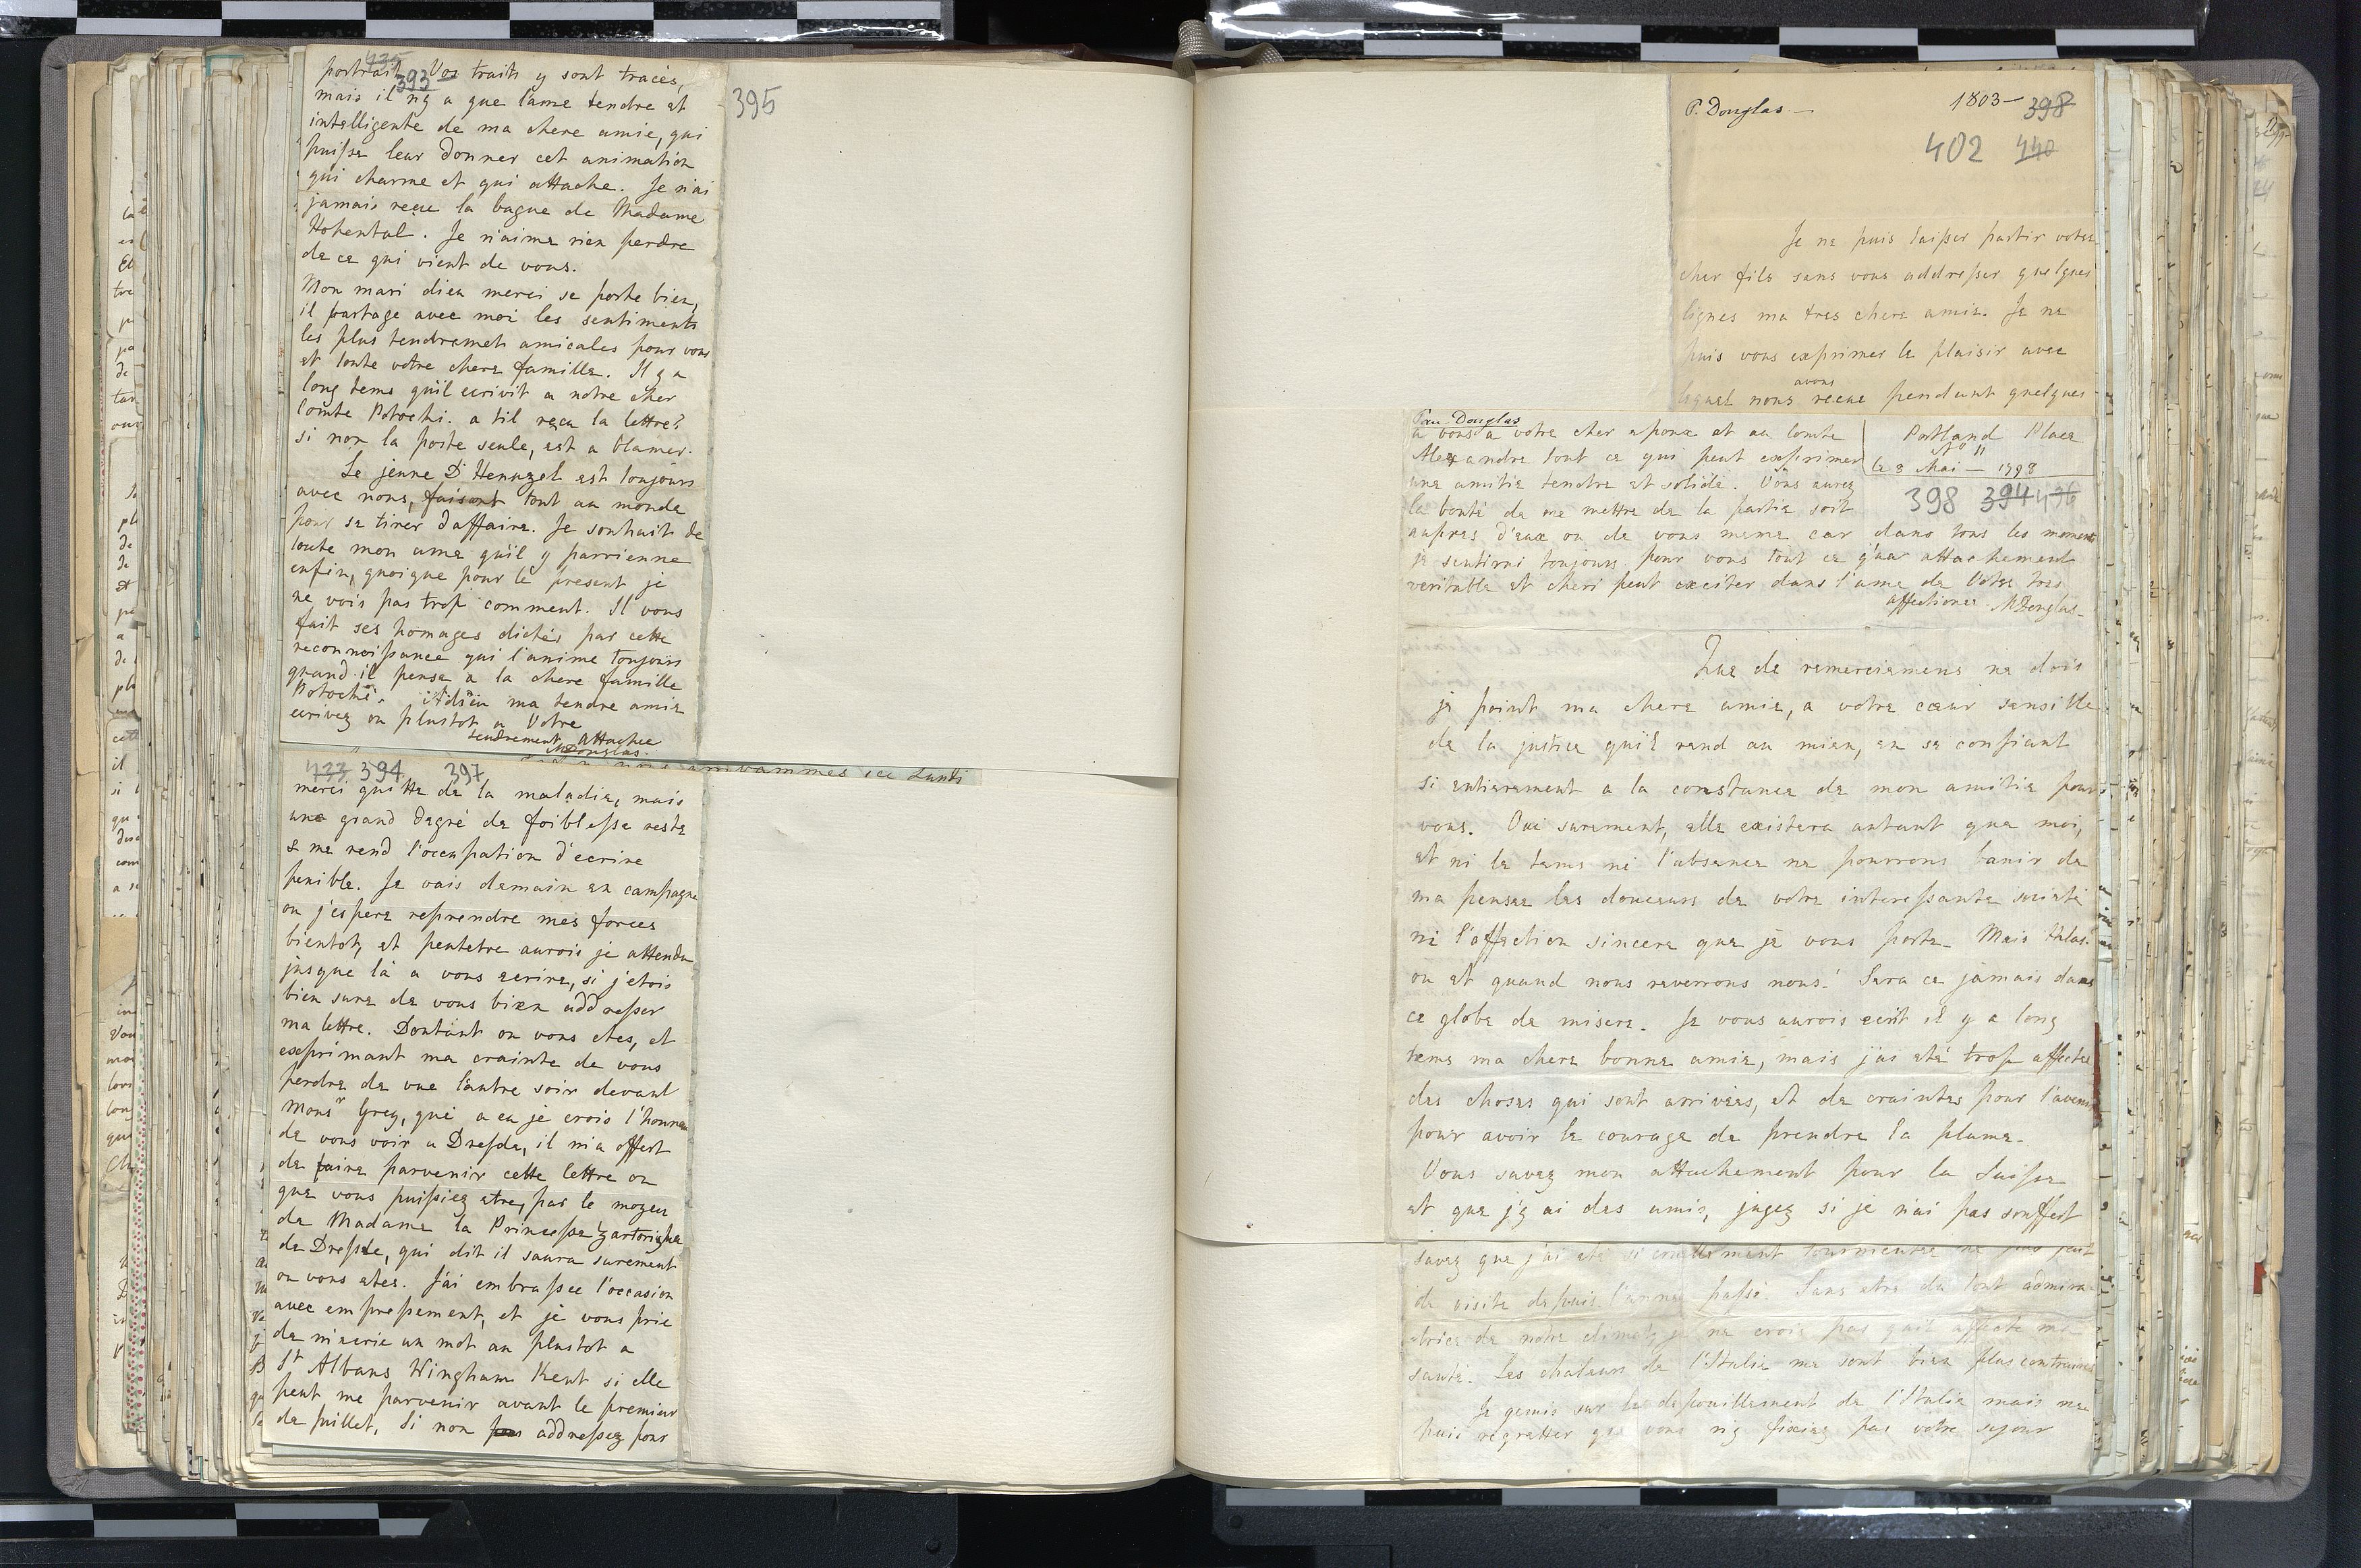 435
393
portrait. Vos traits y sont tracés,
mais il n'y a que l'ame tendre et
intelligente de ma chere amie, qui
puisse leur donner cet animation
qui charme et qui attache. Je n'ai
jamais reçue la bague de Madame
Hohental. Je n'aime rien perdre
de ce qui vient de vous.
Mon mari dieu merci se porte bien,
il partage avec moi les sentiments
les plus tendremets amicales pour vous
et toute votre chere famille. Il y a
long tems qu'il ecrivit a notre cher
Comte Potocki. a til reçu la lettre?
si non la poste seule, est a blamer.
Le jeune D'Hennezel est toujours
avec nous, faisant tout au monde
pour se tirer d'affaire. Je souhait de
toute mon ame qu'il y parvienne
enfin, quoique pour le present je
ne vois pas trop comment. Il vous
fait ses homages dictés par cette
reconnoissance qui l'anime toujours
quand il pense a la chere famille
Potocki. Adieu ma tendre amie
ecrivez au plustot a Votre
tendrement attachee
MDouglas.
395
arrivammes ici Lundi
433 394 397
merci quitte de la maladie, mais
une grand degré de foiblesse reste
& me rend l'occupation d'ecrire
penible. Je vais demain en campagne
ou j'espere reprendre mes forces
bientot, et peutetre aurois je attendu
jusque là a vous ecrire, si j'etois
bien sure de vous bien addresser
ma lettre. Doutant ou vous etes, et
exprimant ma crainte de vous
perdre de vue l'autre soir devant
Monsr Grey, qui a eu je crois l'honneur
de vous voir a Dresde, il m'a offert
de faire parvenir cette lettre ou
que vous puissiez etre, par le moyen
de Madame la Princesse Zartoriska
de Dresde, qui dit il saura surement
ou vous etes. J'ai embrassee l'occasion
avec empressement, et je vous prie
de m'ecrie un mot au plustot a
St Albans Wingham Kent si elle
peut me parvenir avant le premier
de Juillet, Si non addressez pour
P. Douglas — 1803 — 398
402 440
Je ne puis laisser partir votre
cher fils sans vous addresser quelques
lignes ma tres chere amie. Je ne
puis vous exprimer le plaisir avec
lequel nous avons recue pendant quelques
Pau Douglas
a vous a votre cher epoux et au Comte
Alexandre tout ce qui peut exprimer
une amitie tendre et solide. Vous aurez
la bonté de me mettre de la partie soit
aupres d'eux ou de vous meme car dans tous les moments
je sentirai toujours pour vous tout ce qu'un attachement
veritable et cheri peut exciter dans l'ame de Votre tres
affectionee MDouglas
Portland Place
No 11
le 8 Mai — 1798
398 394 436
Que de remerciemens ne dois
je point ma chere amie, a votre cœur sensible
de la justice qu'il rend au mien, en se confiant
si entierement a la constance de mon amitie pour
vous. Oui surement, elle existera autant que moi,
et ni le tems ni l'absence ne pourrons banir de
ma pensee les douceurs de votre interessante societé
ni l'affection sincere que je vous porte. Mais helas!
ou et quand nous reverrons nous! Sera ce jamais dans
ce globe de misere. Je vous aurois ecrit il y a long
tems ma chere bonne amie, mais j'ai eté trop affectee
des choses qui sont arrivées, et de craintes pour l'avenir
pour avoir le courage de prendre la plume.
Vous savez mon attachement pour la Suisse
et que j'y ai des amis, jugez si je n'ai pas souffert
savez que j'ai eté si cruellement tourmentee ne
de visite depuis l'annee passé. Sans etre du tout admira-
-trice de notre climat, je ne crois pas qu'il affecte ma
santé. Les chaleurs de l'Italie me sont bien plus contraires
Je gemis sur le depouillement de l'Italie mais ne
puis regretter que vous n'y fixiez pas votre sejour